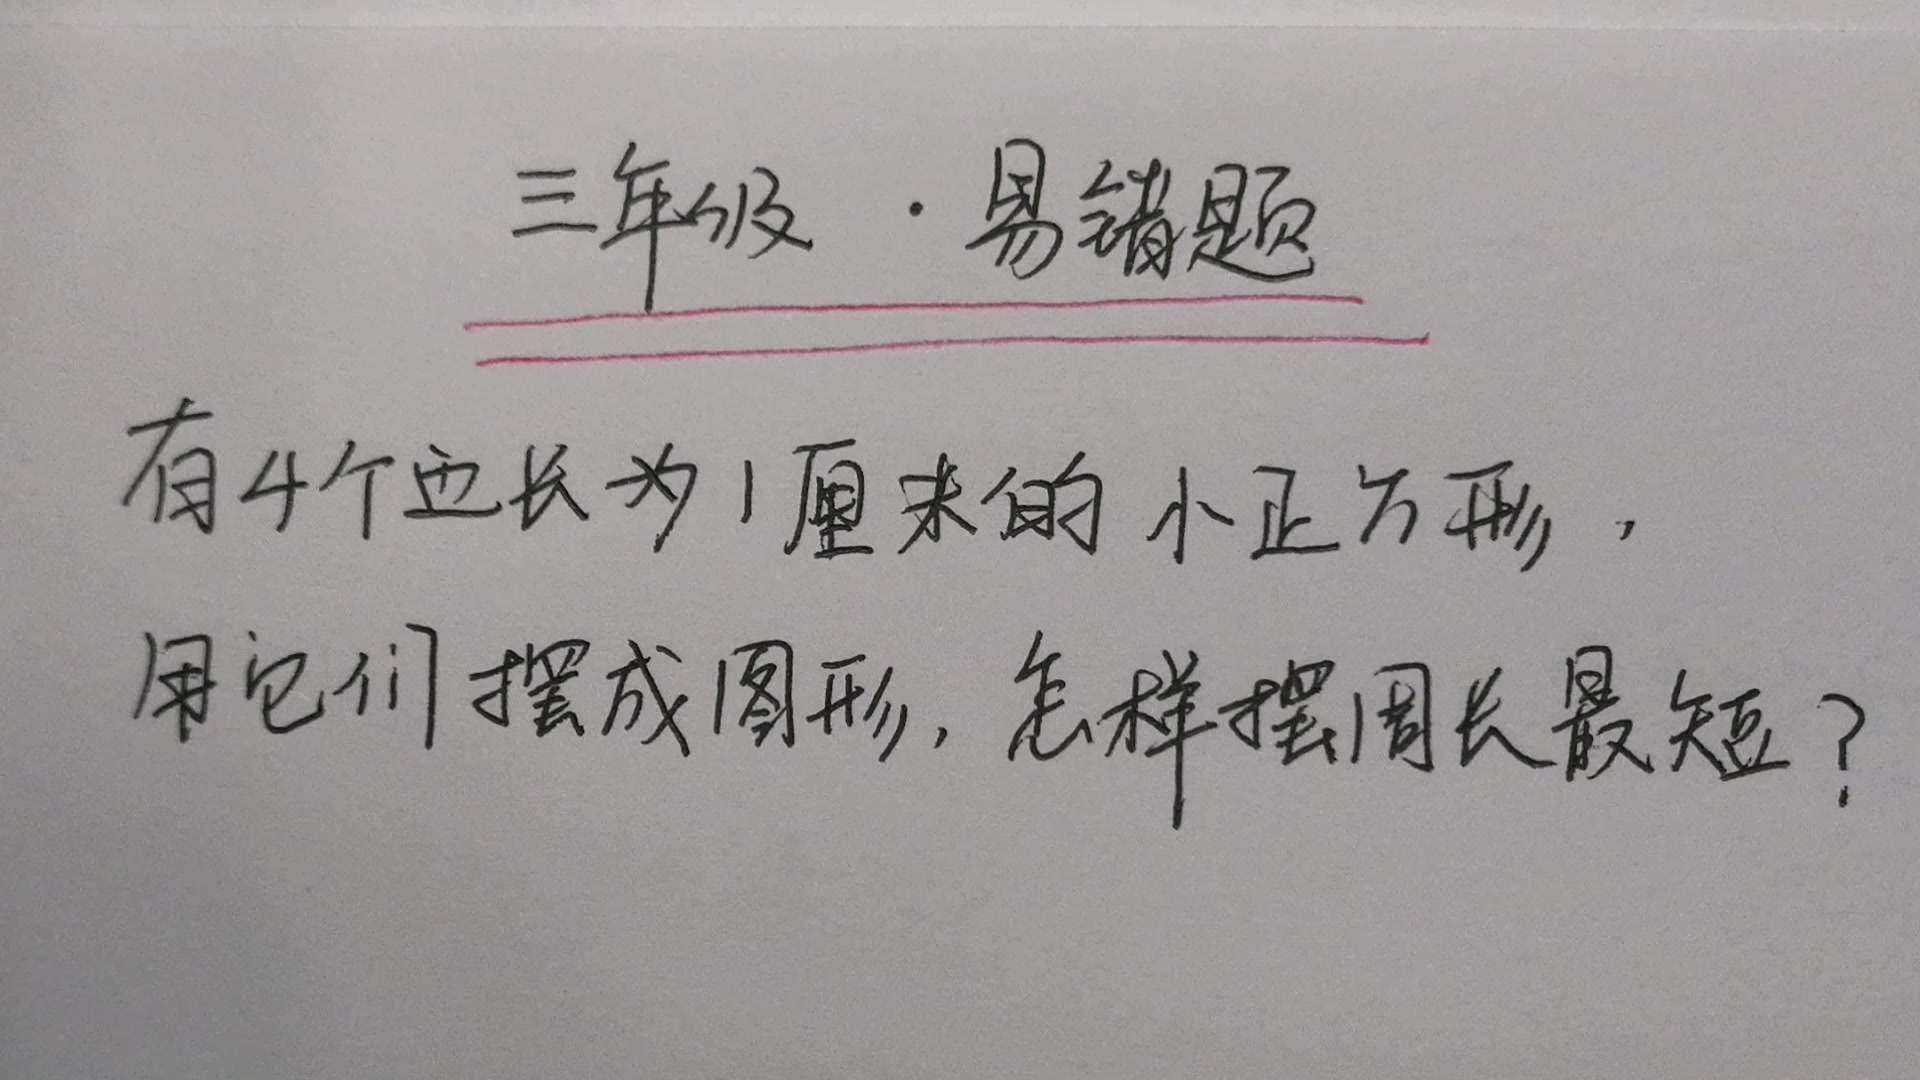 三年级·易错题
有4个边长为1厘米的小正方形,
用它们摆成图形,怎样摆周长最短?